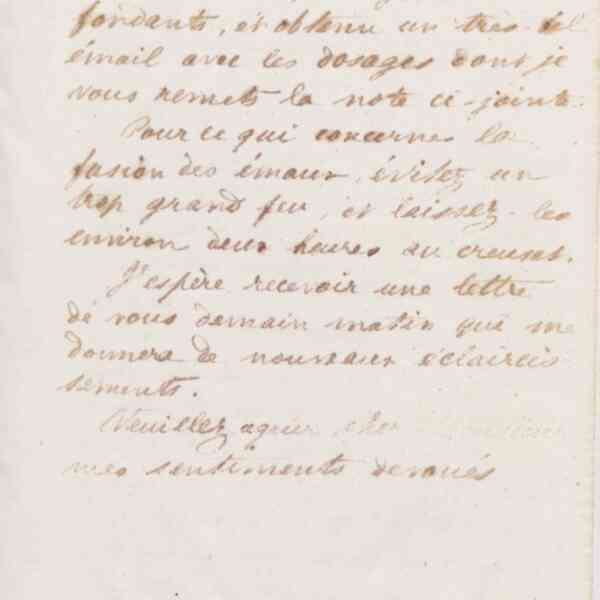 fondants, et obtenu un très bel
émail avec les dosages dont je
vous remets la note ci-jointe.
Pour ce qui concerne la
fusion des émaux, évitez un
trop grand feu, et laissez-les
environ deux heures au creuset.
J'espère recevoir une lettre
de vous demain matin qui me
donnera de nouveaux éclaircis
sements.
Veuillez agréer, cher
mes sentiments dévoués